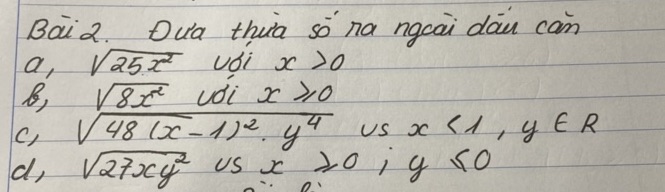 Bài 2. Đưa thừa số ra ngoài dấu căn
a, √25x² với x > 0
b, √8x² với x ≥ 0
c, √48(x-1)².y⁴ vs x < 1, y ∈ R
d, √27xy² vs x ≥ 0 ; y ≤ 0